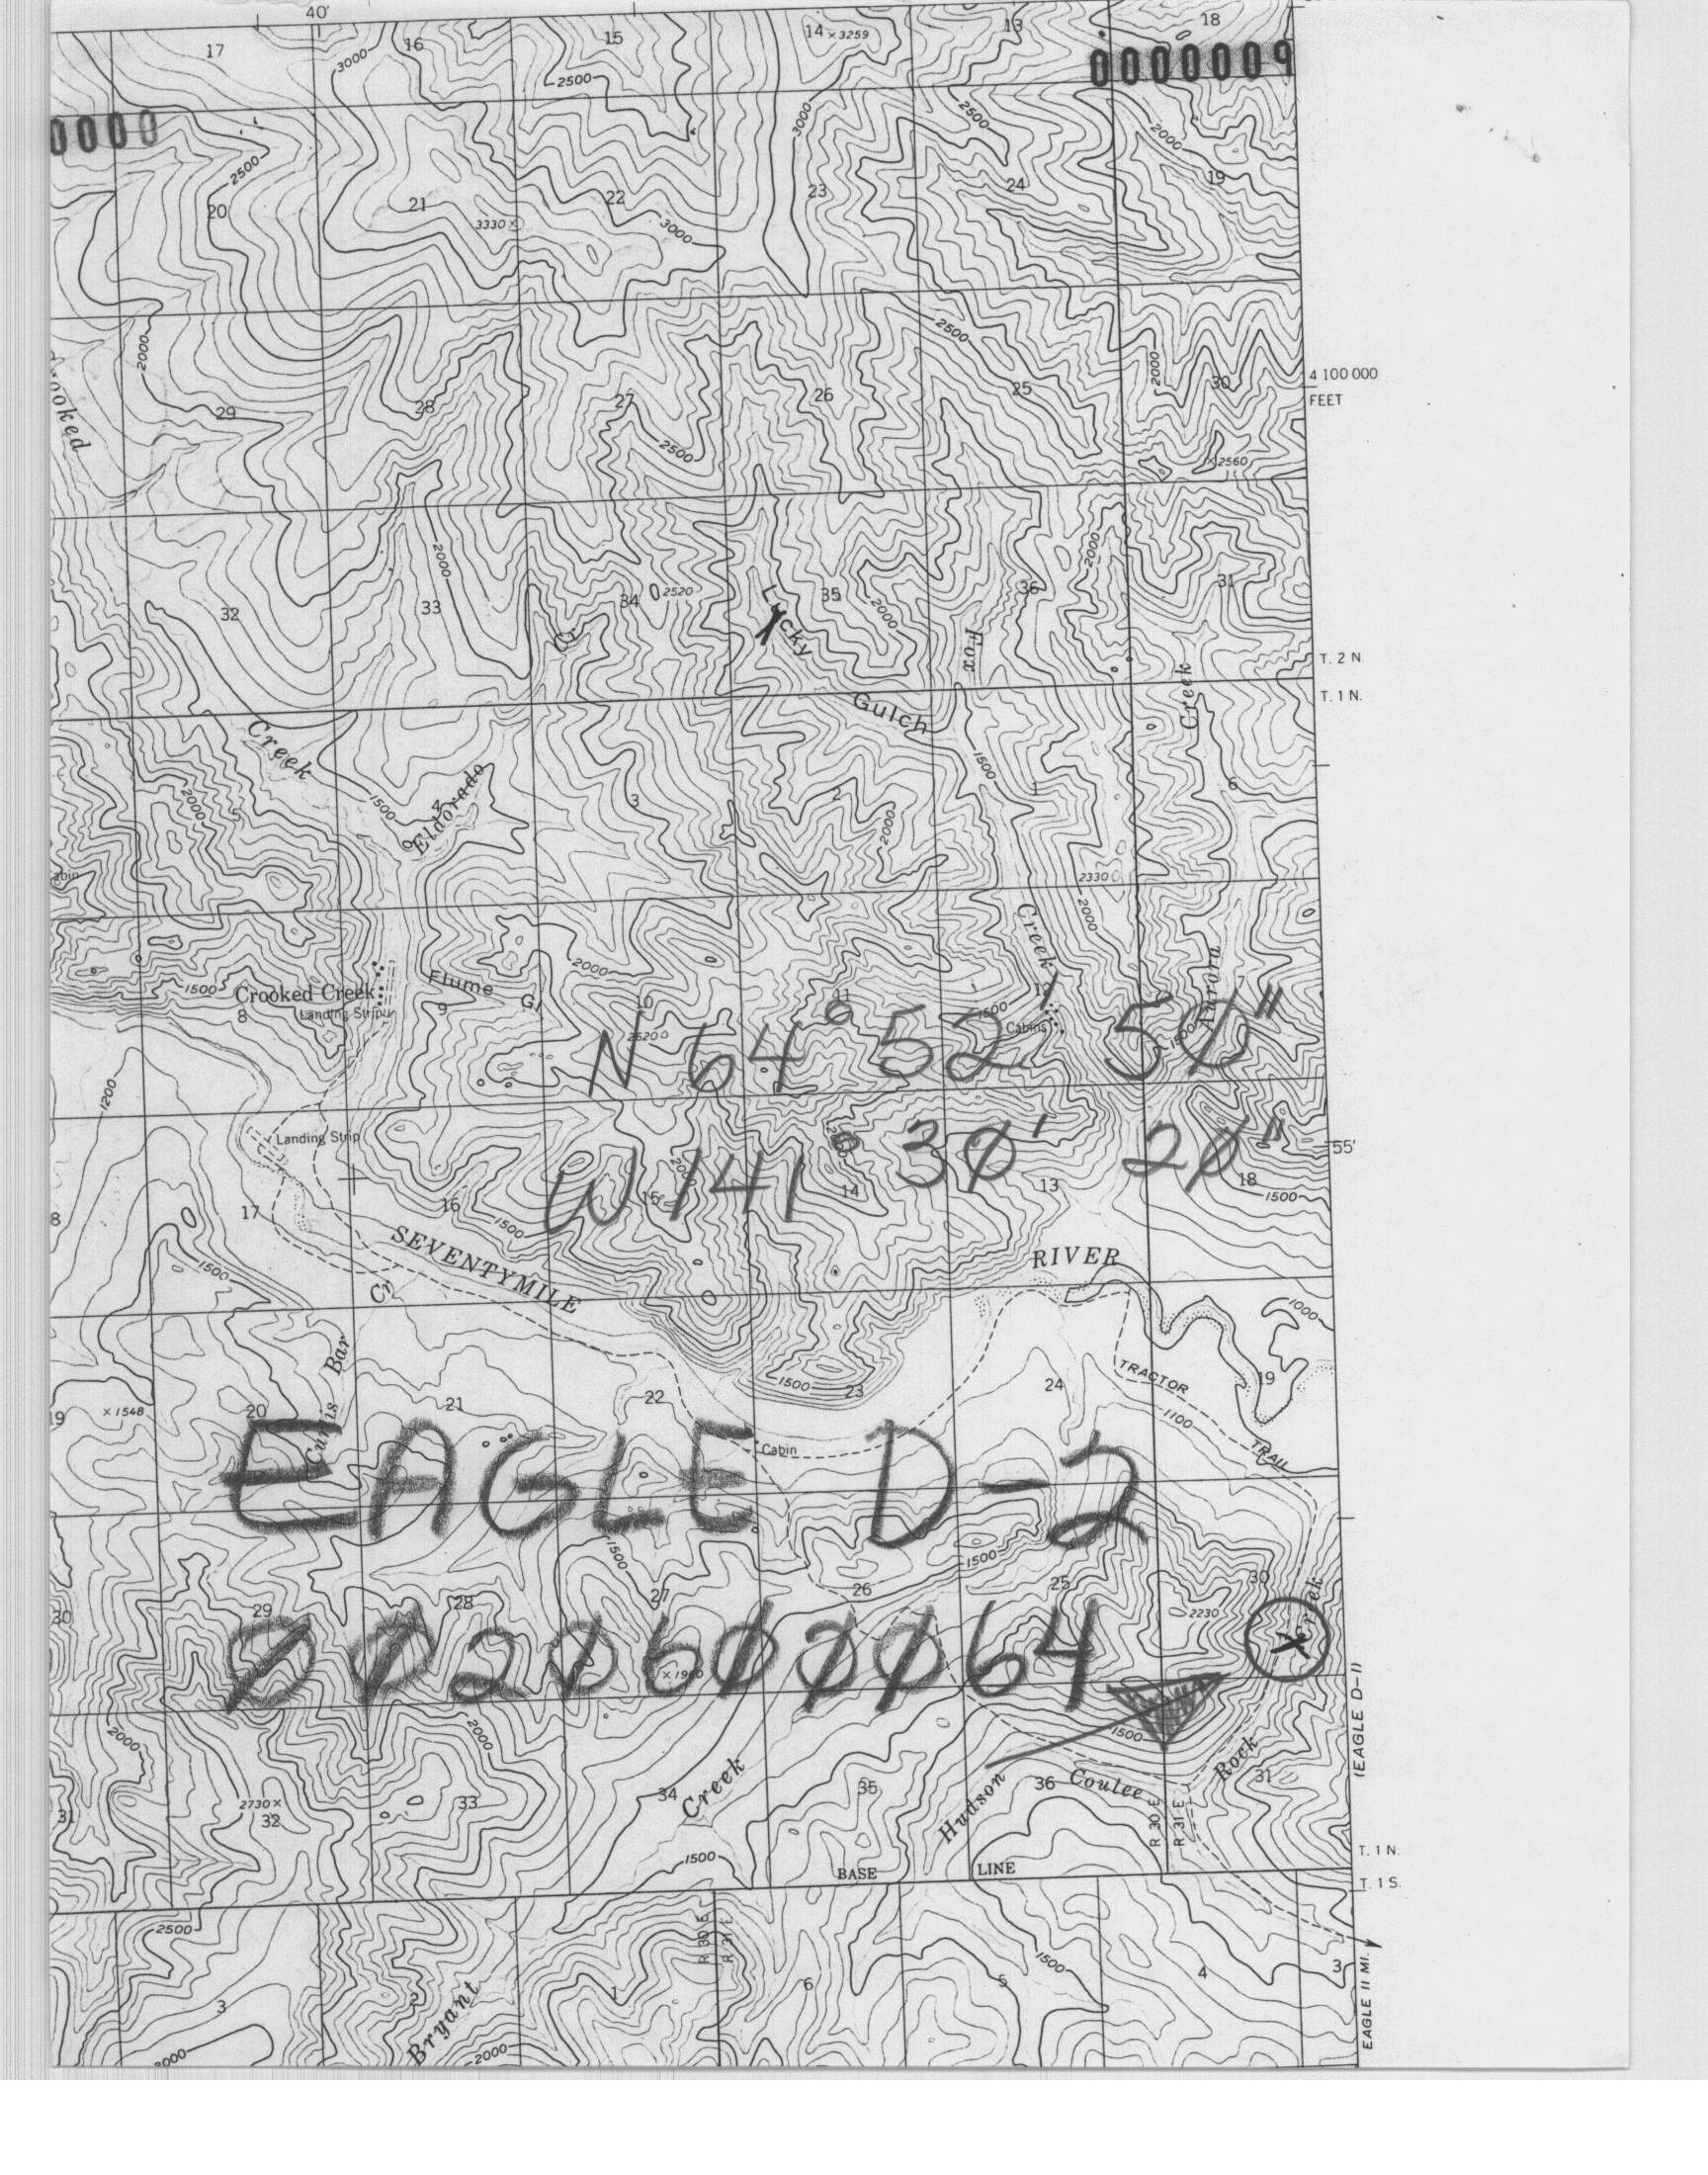 40'
17 16 15 14 ×3259 13 18
0000009
3000 2500 3000 2500 2000
0000
2500
20 21 22 23 24 19
3330× 3000
2000 2500 2000
4 100 000
FEET
29 28 27 26 25 30
2500 ×2560
2000 2000
32 33 34 2520 35 36 31
Cr Lucky Gulch 2000 Fox
T. 2 N.
T. 1 N.
Creek Creek
1500 1500
2000 5 4 3 2 1 6
Eldorado 2000
2330
Creek 2000 Aurora
Crooked Creek Flume Gl 2000
1500 8 Landing Strip 9 10 11 12 7
2520 1500 Cabins 1500
N 64° 52' 50"
1200
Landing Strip
W 141° 30' 20"
55'
17 16 15 14 13 18
1500 1500
SEVENTYMILE RIVER
1500 Cr 1000
Curtis Bar
1500 TRACTOR TRAIL
19 ×1548 20 21 22 23 24 19
1100
Cabin
EAGLE D-2
1500 1500
30 29 28 27 26 25 30
2230 Creek
0020600064
X
(EAGLE D-1)
2000 2000 1500
Hudson Coulee Rock
31 2730× 32 33 34 Creek 35 36 31
R 30 E R 31 E
1500 BASE LINE
T. 1 N.
T. 1 S.
2500 R 30 E R 31 E 1500
3 2 1 6 5 4 3
Bryant
2000
EAGLE 11 MI.